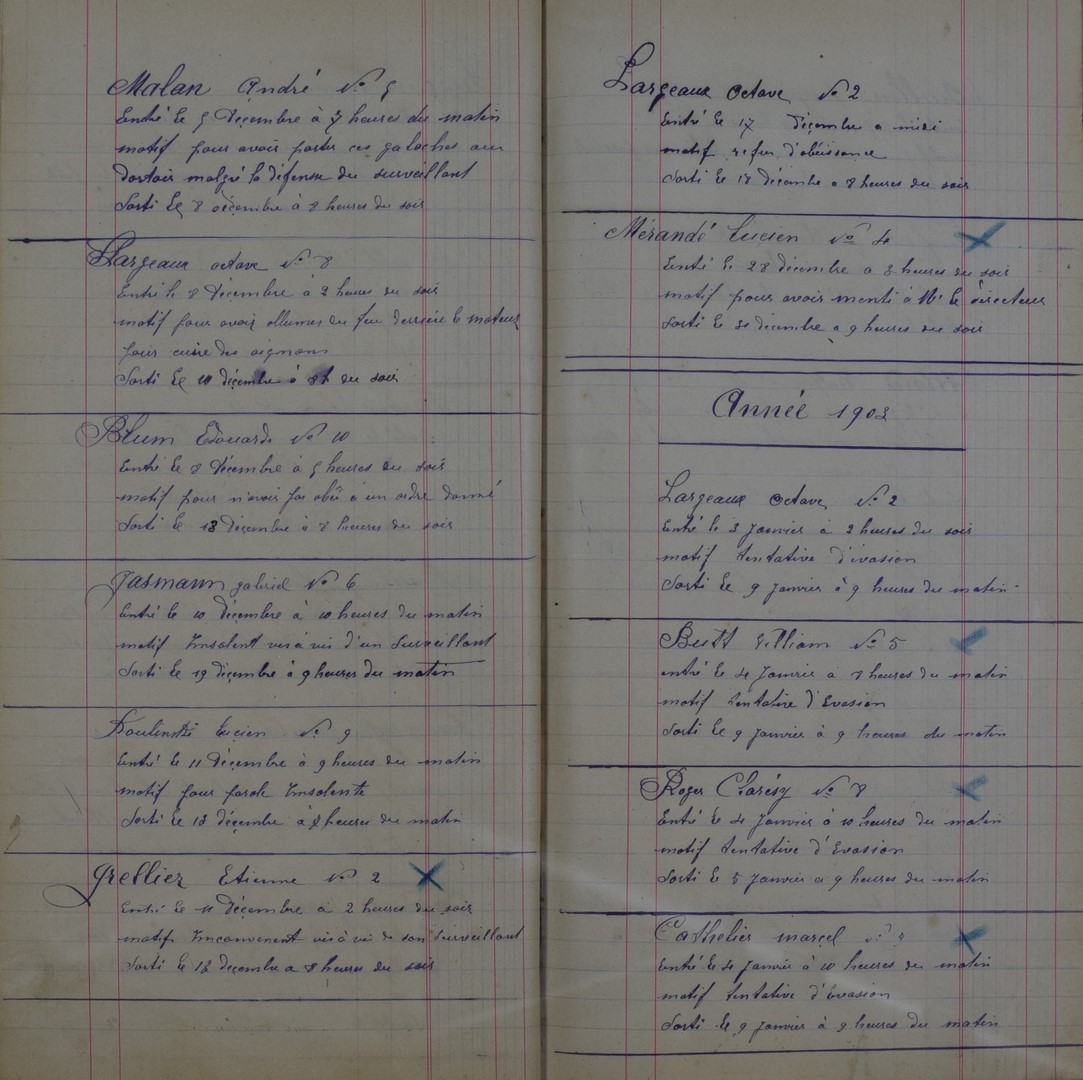 Malan André N° 5
Entré le 5 Décembre à 7 heures du matin
motif pour avoir porter ces galoches au
Dortoir malgré la défense du surveillant
Sorti le 8 décembre à 8 heures du soir
Largeaux octave N° 8
Entré le 8 Décembre à 2 heures du soir
motif pour avoir allumes du feu derrière le moteur
pour cuire des oignons
Sorti le 10 décembre à 8h du soir
Blum Edouard N° 10
Entré le 8 Décembre à 5 heures du soir
motif pour n'avoir pas obéi a un ordre donné
Sorti le 18 décembre à 8 heures du soir
Jasmann gabriel N° 6
Entré le 10 Décembre à 10 heures du matin
motif Insolent vis à vis d'un surveillant
Sorti le 19 décembre à 9 heures du matin
lucien N° 9
Entré le 11 Décembre à 9 heures du matin
motif pour parole Insolente
Sorti le 18 décembre à heures du matin
Grellier Etienne N° 2
Entré le 11 Décembre à 2 heures du soir
motif Inconvenent vis à vis de son surveillant
Sorti le 18 décembre a 8 heures du soir
Largeaux Octave N° 2
Entré le 17 Décembre a midi
motif refus d'obéissance
Sorti le 18 décembre a 8 heures du soir
Mérandé Lucien N° 4
Entré le 28 décembre a 8 heures du soir
motif pour avoir menti à Mr le directeur
Sorti le décembre a 9 heures du soir
Année 1902
Largeaux Octave N° 2
Entré le 3 Janvier à 2 heures du soir
motif tentative d'évasion
Sorti le 9 Janvier à 9 heures du matin
Butt William N° 5
entré le 4 Janvier à 8 heures du matin
motif tentative d'Evasion
Sorti le 9 Janvier à 9 heures du matin
Roger N° 8
Entré le 4 Janvier à 10 heures du matin
motif tentative d'Evasion
Sorti le 5 Janvier a 9 heures du matin
Cathelier marcel N°
Entré le 4 Janvier à 10 heures du matin
motif tentative d'Evasion
Sorti le 9 Janvier à 9 heures du matin